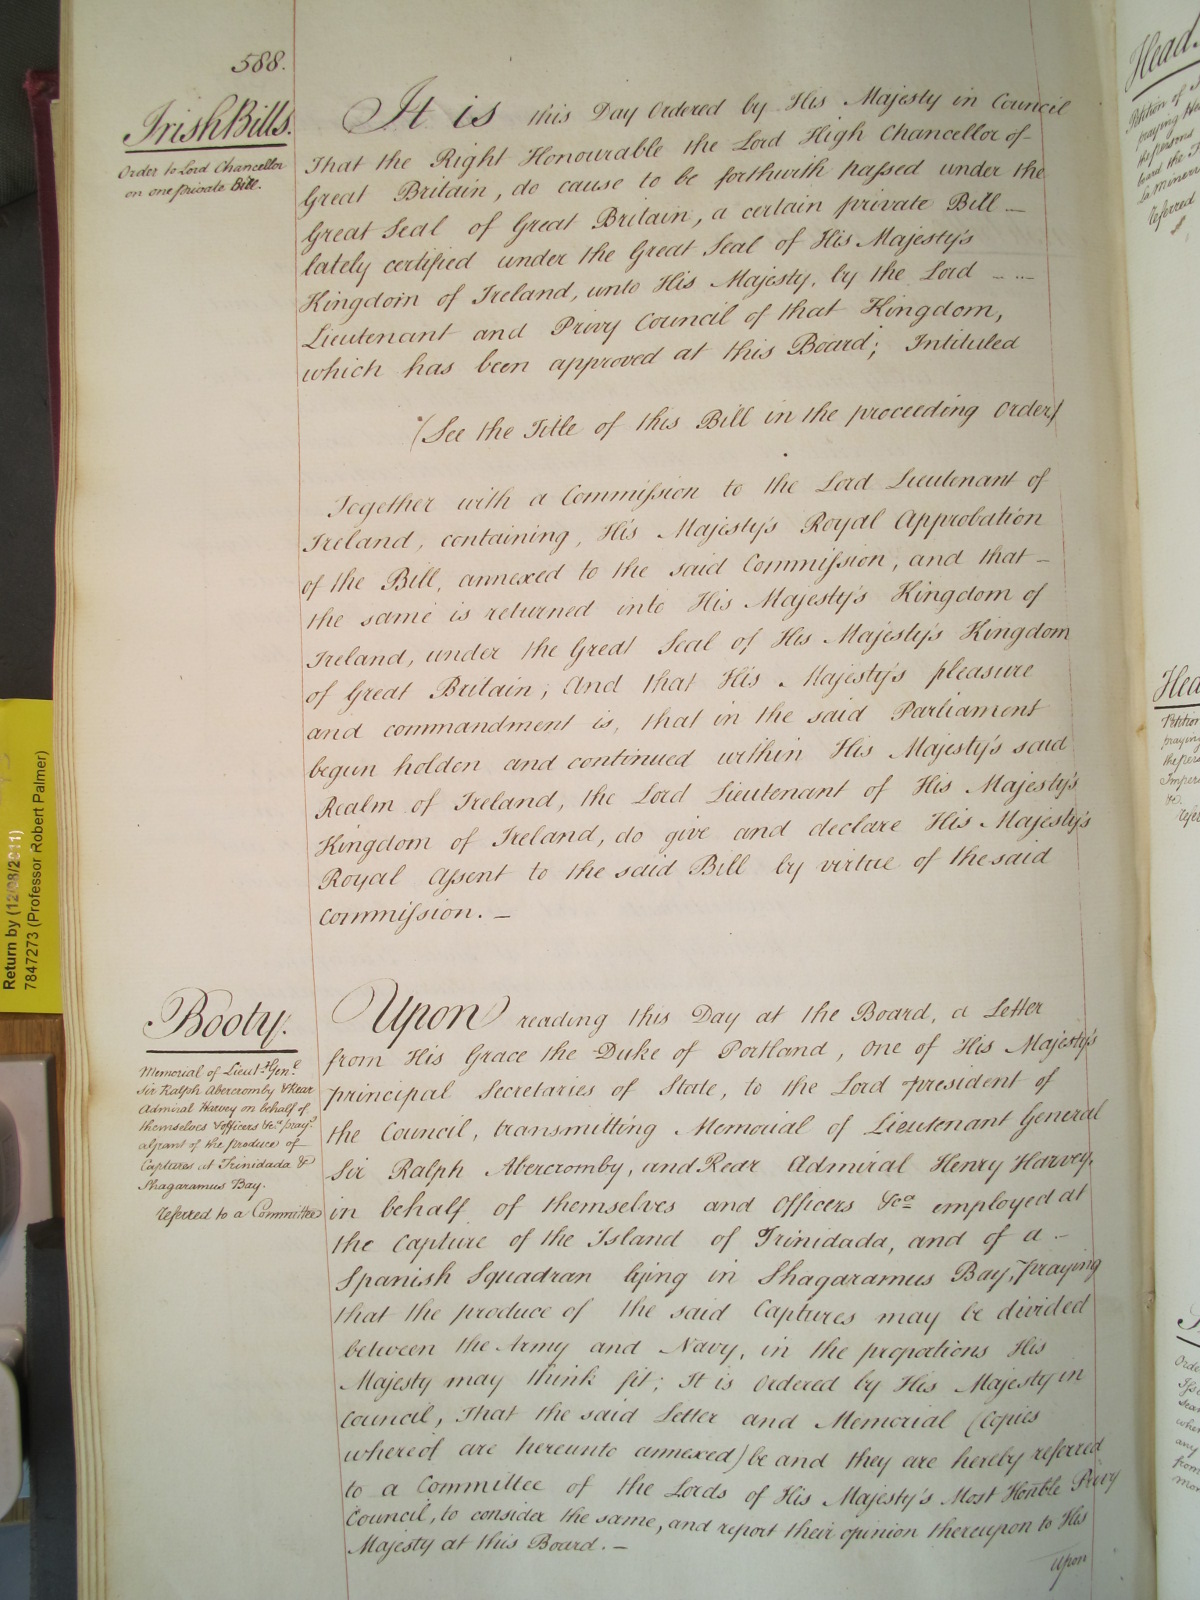 588.
Irish Bills.
Order to Lord Chancellor
on one private Bill.
It is this Day Ordered by His Majesty in Council
That the Right Honourable the Lord High Chancellor of
Great Britain, do cause to be forthwith passed under the
Great Seal of Great Britain, a certain private Bill —
lately certified under the Great Seal of His Majesty's
Kingdom of Ireland, unto His Majesty, by the Lord - --
Lieutenant and Privy Council of that Kingdom,
which has been approved at this Board; Intituled
(See the Title of this Bill in the proceeding Order)
Together with a Commission to the Lord Lieutenant of
Ireland, containing, His Majesty's Royal Approbation
of the Bill, annexed to the said Commission, and that —
the same is returned into His Majesty's Kingdom of
Ireland, under the Great Seal of His Majesty's Kingdom
of Great Britain; And that His Majesty's pleasure
and commandment is, that in the said Parliament
begun holden and continued within His Majesty's said
Realm of Ireland, the Lord Lieutenant of His Majesty's
Kingdom of Ireland, do give and declare His Majesty's
Royal Assent to the said Bill by virtue of the said
Commission. —
Booty.
Memorial of Lieut.t Gen.l
Sir Ralph Abercromby & Rear
Admiral Harvey on behalf of
themselves & officers &c.a pray.g
a grant of the produce of
Captures at Trinidada &
Shagaramus Bay.
referred to a Committee
Upon reading this Day at the Board, a Letter
from His Grace the Duke of Portland, One of His Majesty's
principal Secretaries of State, to the Lord president of
the Council, transmitting Memorial of Lieutenant General
Sir Ralph Abercromby, and Rear Admiral Henry Harvey,
in behalf of themselves and Officers &c.a employed at
the Capture of the Island of Trinidada, and of a —
Spanish Squadran lying in Shagaramus Bay, praying
that the produce of the said Captures may be divided
between the Army and Navy, in the propotions His
Majesty may think fit; It is Ordered by His Majesty in
Council, That the said Letter and Memorial (Copies
whereof are hereunto annexed) be and they are hereby referred
to a Committee of the Lords of His Majesty's Most Honble Privy
Council, to consider the same, and report their opinion thereupon to His
Majesty at this Board. —
Upon
Return by (12/08/2011)
7847273 (Professor Robert Palmer)
Head.
Petition of
praying